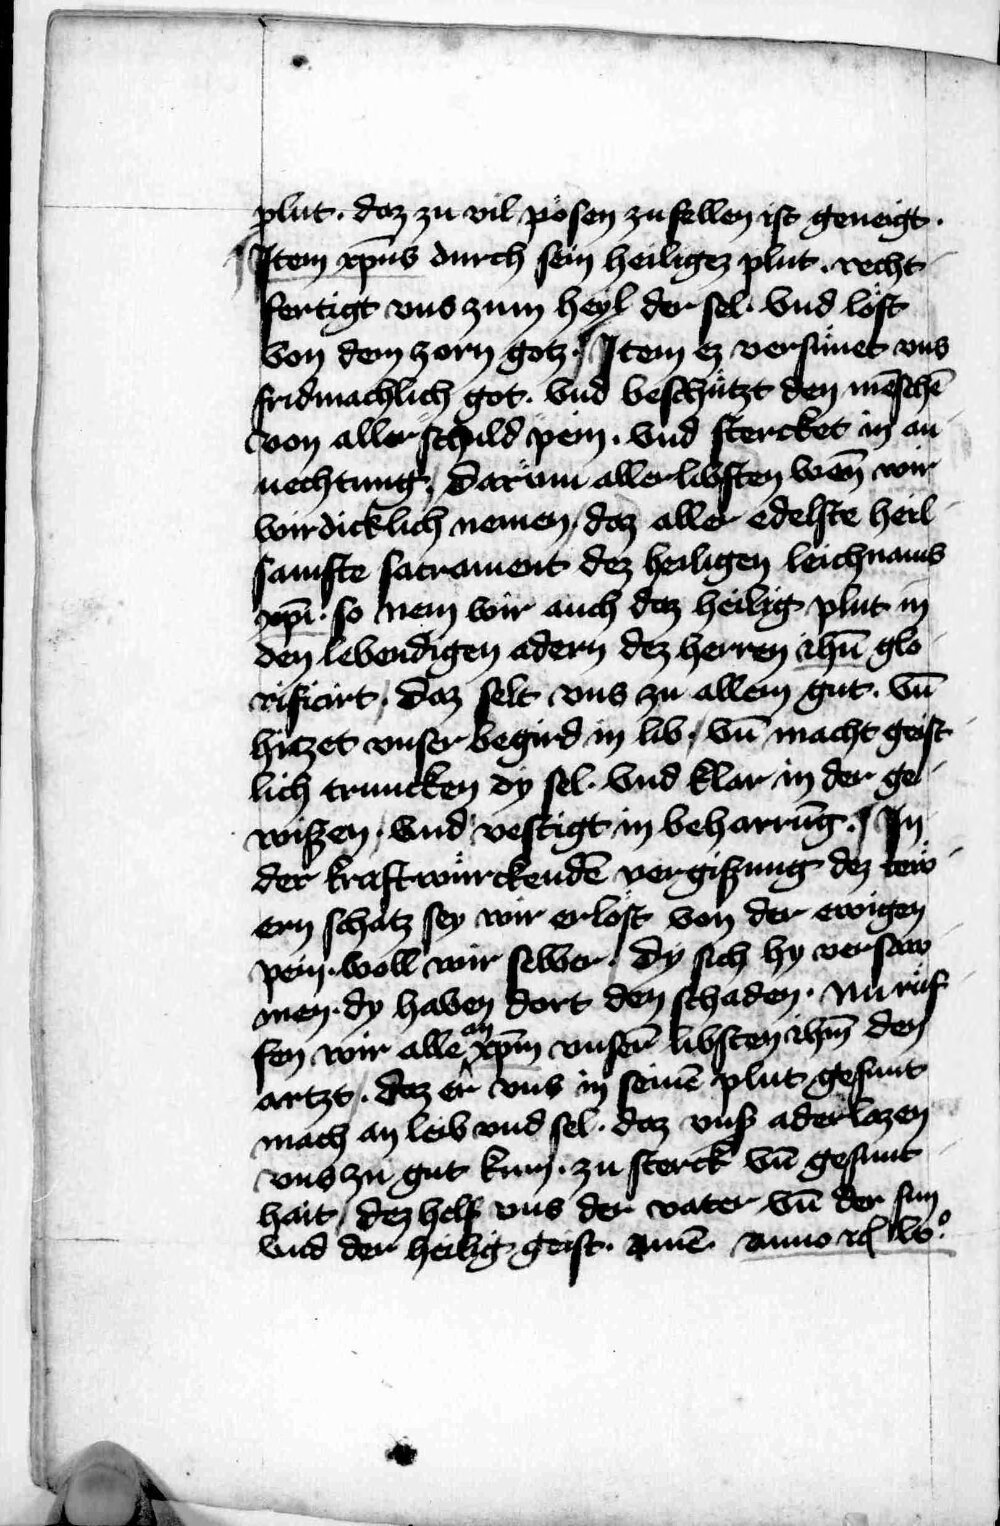 plut. daz zu vil pösen zufellen ist geneigt.
Item xp̄us durch sein heiligez plut. recht
fertigt vns zum heyl der sel. vnd löst
von dem zorn gotz. Item ez versünet vns
fridmachlich got. vnd beschützt den mēschē
von aller schuld pein. vnd stercket in an
uechtung. Darüm aller libsten wēn wir
wirdicklich nemen / daz aller edelste heil
samste sacrament dez heiligen leichnams
xp̄i. so nem wir auch daz heilig plut in
den lebendigen adern dez herren ihū glo
rificirt / daz selt vns zu allem gut. vn̄
hitzet vnser begird in lib / vn̄ macht geist
lich truncken dy sel. vnd klar in der ge
wißen. vnd vestigt in beharrūg. In
der kraft würckendē vergißung dez tew
ern schatz sey wir erlöst von der ewigen
pein. woll wir selber. Dy sich hy versaw
men. dy haben dort den schaden. Nu rüf
fen wir alle an xp̄m vnsern̄ libsten ihm̄ den
artzt. daz er vns in seinē plut gesunt
mach an leib vnd sel. daz vnß aderlazen
vns zu gut kum. zu sterck vn̄ gesunt
hait / dez helf vns der vater vn̄ der sun
vnd der heilig geist. amē. anno